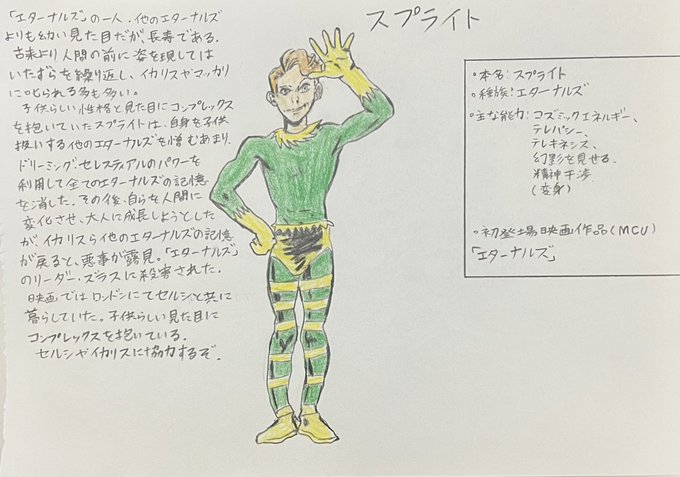 スプライト
「エターナルズ」の一人。他のエターナルズ
よりも幼い見た目だが長寿である。
古来より人間の前に姿を現しては
いたずらを繰り返し、イカリスやマッカリ
に叱られる多も多い。
子供らしい性格と見た目にコンプレックス
を抱いていたスプライトは、自身を子供
扱いする他のエターナルズを憎むあまり、
ドリーミング・セレスティアルのパワーを
利用して全てのエターナルズの記憶
を消した。その後、自らを人間に
変化させ、大人に成長しようとした
がイカリスら他のエターナルズの記憶
が戻ると、悪事が露見。「エターナルズ」
のリーダー・ズラスに殺害された。
映画ではロンドンにてセルシと共に
暮らしていた。子供らしい見た目に
コンプレックスを抱いている。
セルシやイカリスに協力するぞ。
・本名:スプライト
・種族:エターナルズ
・主な能力:コズミックエネルギー、
テレパシー、
テレキネシス、
幻影を見せる、
精神干渉
(変身)
・初登場映画作品(MCU)
「エターナルズ」